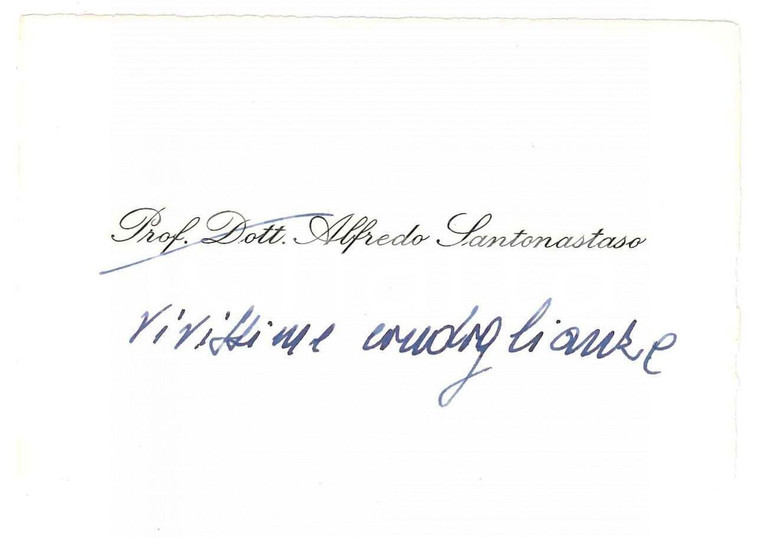 Prof. Dott. Alfredo Santonastaso
vivissime condoglianze